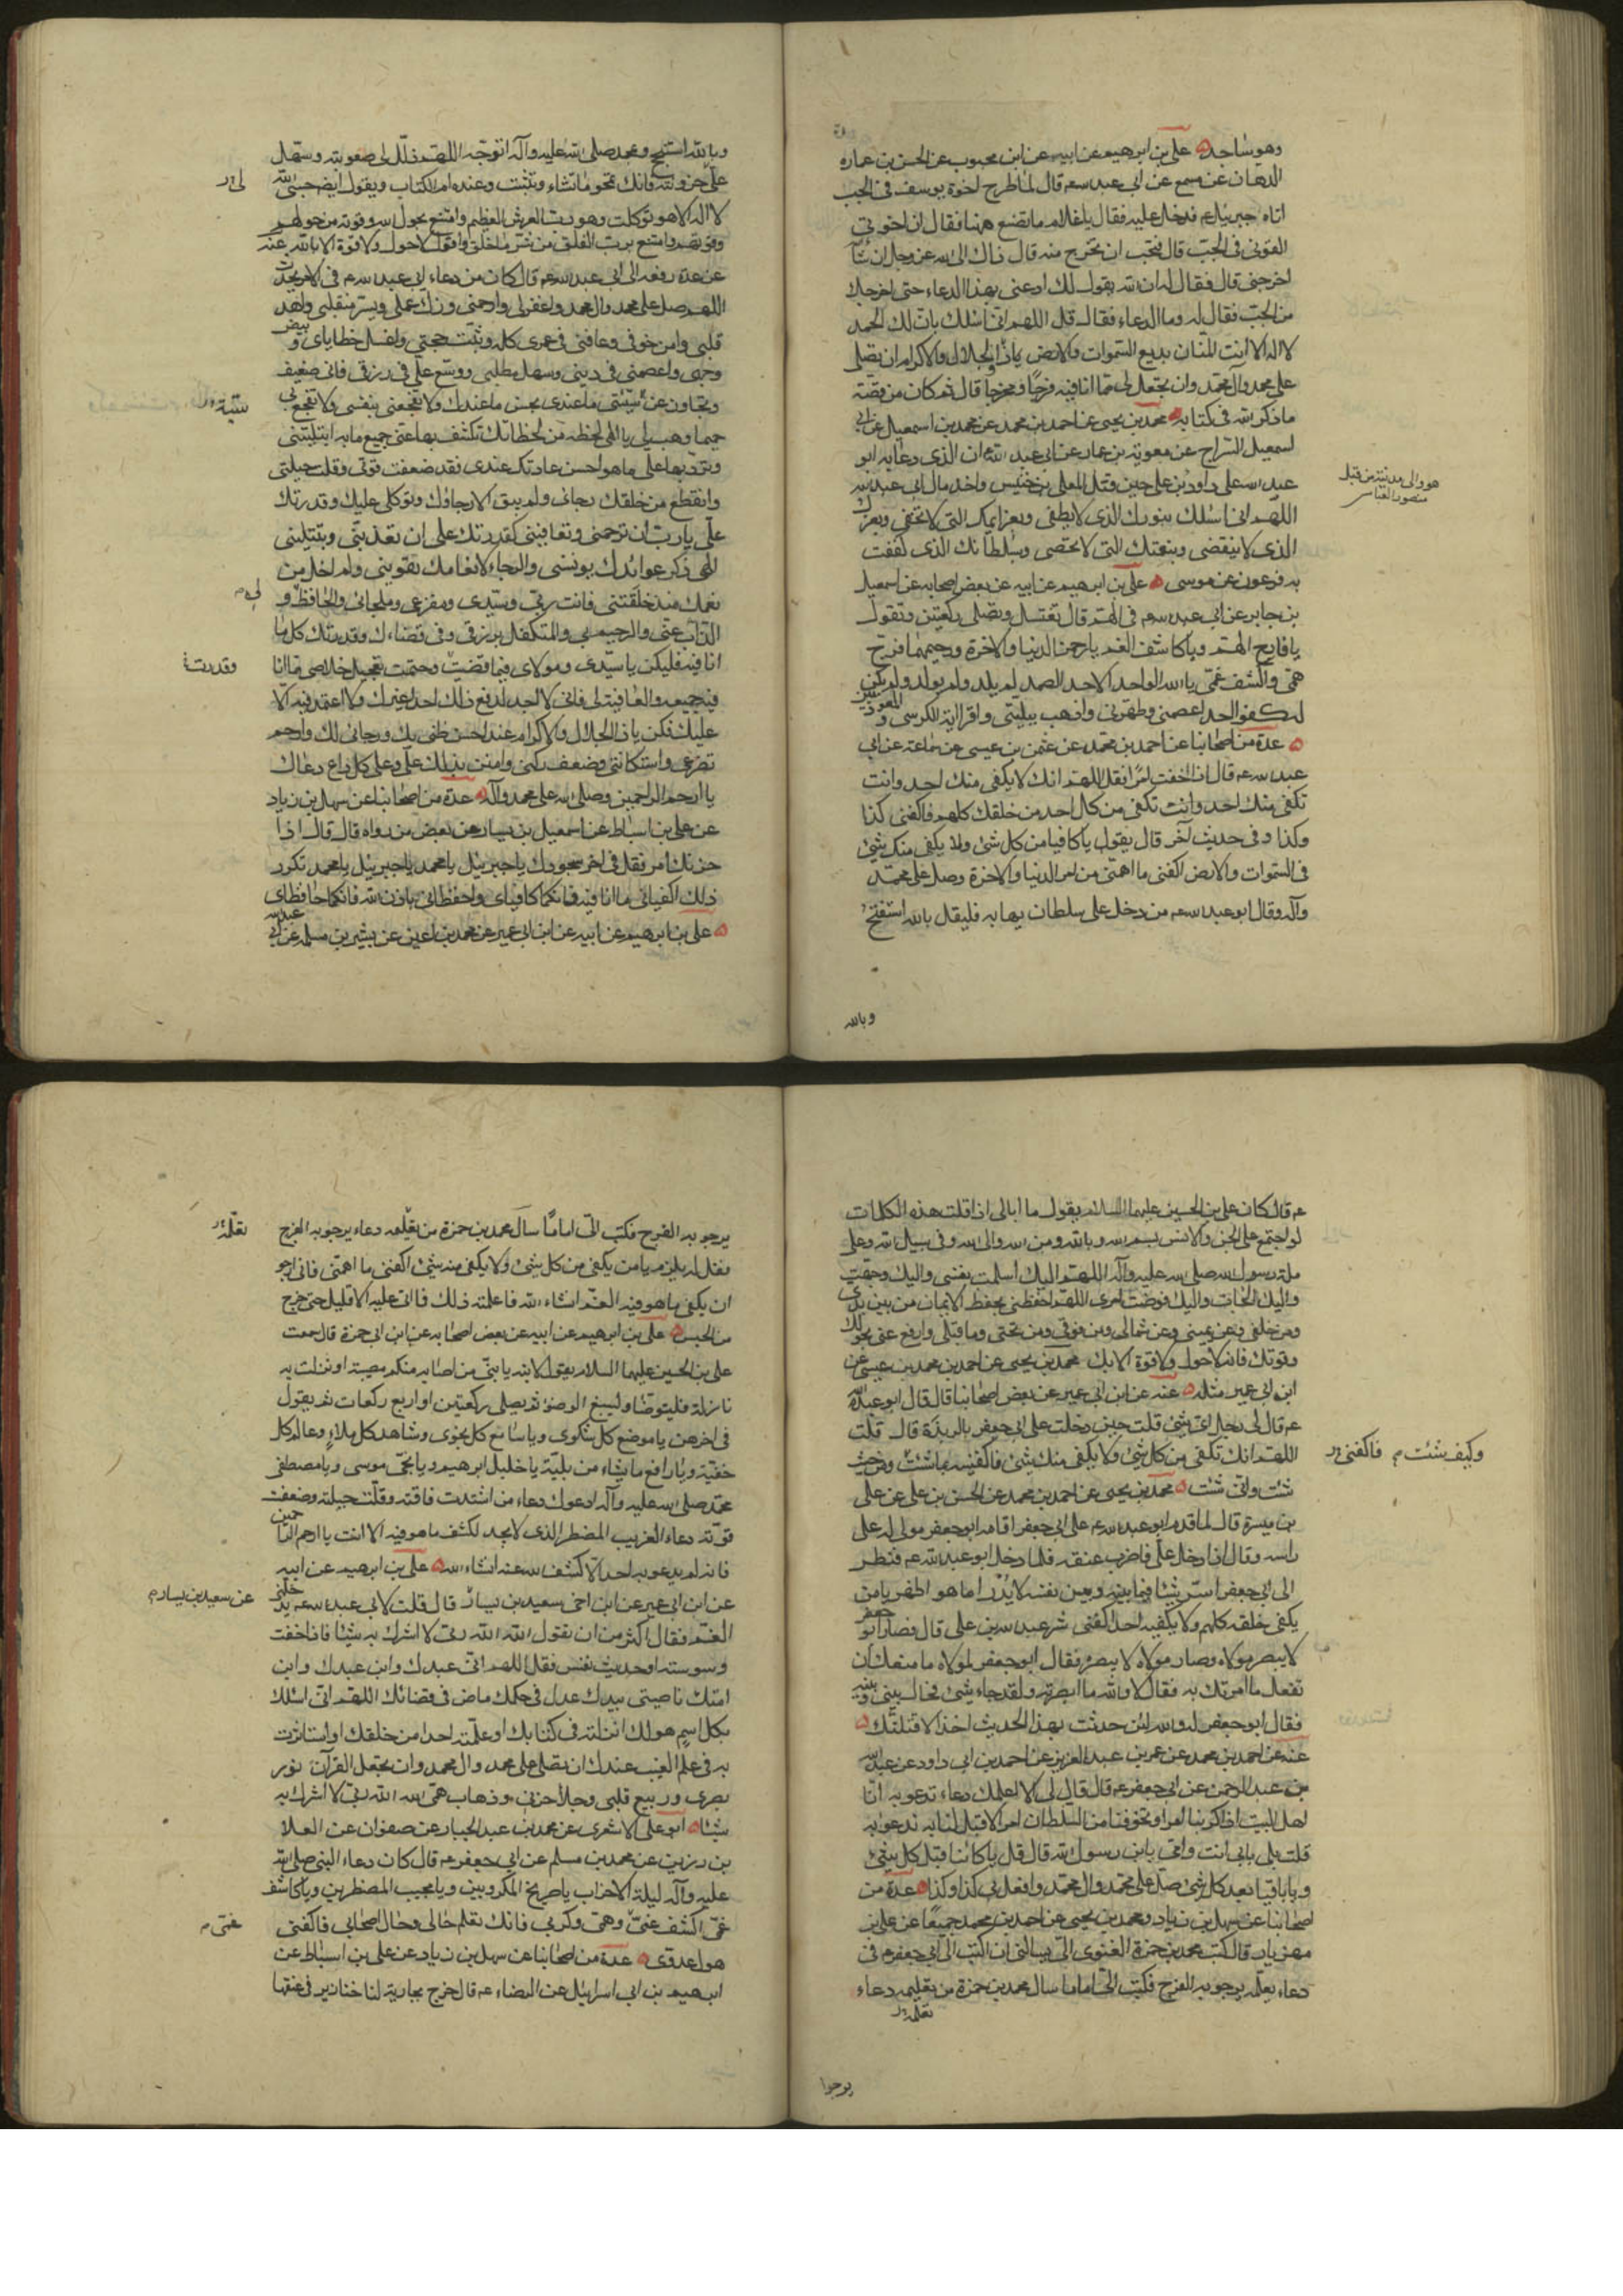 وهو ساجد علي بن ابرهيم عن ابيه عن ابن محبوب عن الحسن بن عماره
الدهان عن مسمع عن ابي عبد الله ع قال لما طرح اخوة يوسف في الجب
اتاه جبرئيل ع فدخل عليه فقال يا غلام ما تصنع ههنا فقال ان اخوتي
القوني في الجب قال فتحب ان تخرج منه قال ذاك الى الله عز وجل ان شاء
اخرجني قال فقال له ان الله يقول لك ادعني بهذا الدعاء حتى اخرجك
من الجب فقال له وما الدعاء فقال قل اللهم اني اسئلك بان لك الحمد
لا اله الا انت المنان بديع السموات والارض يا ذا الجلال والاكرام ان تصلي
على محمد وآل محمد وان تجعل لي مما انا فيه فرجا ومخرجا قال ثم كان من قصته
ما ذكر الله في كتابه محمد بن يحيى عن احمد بن محمد عن محمد بن اسمعيل عن ابي
اسمعيل السراج عن معوية بن عمار عن ابي عبد الله ان الذي دعا به ابو
عبد الله على داود بن علي حين قتل المعلى بن خنيس واخذ مال ابي عبد الله
هو والي مدينة من قبل
منصور العباسي
اللهم اني اسئلك بنورك الذي لا يطفى وبعزايمك التي لا تخفى وبعزك
الذي لا ينقضي وبنعمتك التي لا تحصى وبسلطانك الذي كففت
به فرعون عن موسى علي بن ابرهيم عن ابيه عن بعض اصحابه عن اسمعيل
بن جابر عن ابي عبد الله ع في الهم قال تغتسل وتصلي ركعتين وتقول
يا فارج الهم ويا كاشف الغم يا رحمن الدنيا والاخرة ورحيمهما فرج
همي واكشف غمي يا الله الواحد الاحد الصمد لم يلد ولم يولد ولم يكن
له كفوا احد اعصمني وطهرني واذهب ببليتي واقرا اية الكرسي و المعوذتين
عدة من اصحابنا عن احمد بن محمد عن عثمن بن عيسى عن سماعة عن ابي
عبد الله ع قال اذا خفت امرا فقل اللهم انك لا يكفي منك احد وانت
تكفي منك احد وانت تكفي من كل احد من خلقك كلهم فاكفني كذا
وكذا وفي حديث آخر قال يقول يا كافيا من كل شئ ولا يكفي منك شئ
في السموات والارض اكفني ما اهمني من امر الدنيا والاخرة وصل على محمد
وآله وقال ابو عبد الله ع من دخل على سلطان يهابه فليقل بالله استفتح
وبالله
وبالله استنجح وبمحمد صلى الله عليه وآله اتوجه اللهم ذلل لي صعوبته وسهل
لي حزونته فانك تمحو ما تشاء وتثبت وعنده ام الكتاب ويقول ايضا حسبي الله
لا اله الا هو توكلت وهو رب العرش العظيم وامتنع بحول الله وقوته من حولهم
وقوتهم وامتنع برب الفلق من شر ما خلق واقول لا حول ولا قوة الا بالله عنه
عن عدة رفعه الى ابي عبد الله ع قال كان من دعاء ابي عبد الله ع في الامر يحدث
اللهم صل على محمد وال محمد واغفر لي وارحمني وزك عملي ويسر منقلبي واهد
قلبي وامن خوفي وعافني في عمري كله وثبت حجتي واغسل خطاياي وبيض
وجهي واعصمني في ديني وسهل مطلبي ووسع علي في رزقي فاني ضعيف
وتجاوز عن سيئتي ما عندي بحسن ما عندك ولا تفجعني بنفسي ولا تفجع لي
حميما وهب لي يا الهي لحظة من لحظاتك تكشف بها عني جميع ما به ابتليتني
وترد بها علي ما هو احسن عاداتك عندي فقد ضعفت قوتي وقلت حيلتي
وانقطع من خلقك رجائي ولم يبق الا رجاؤك وتوكلي عليك وقدرتك
علي يا رب ان ترحمني وتعافيني كقدرتك على ان تعذبني وتبتليني
الهي ذكر عوائدك يونسني والرجاء لانعامك يقويني ولم اخل من
نعمك منذ خلقتني فانت ربي وسيدي ومفزعي وملجائي والحافظ و
الذاب عني والرحيم بي والمتكفل برزقي وفي قضاءك وقدرتك كل ما
وقدرتك
انا فيه فليكن يا سيدي ومولاي فيما قضيت وحتمت تعجيل خلاصي مما انا
فيه جميعه والعافية لي فاني لا اجد لدفع ذلك احدا غيرك ولا اعتمد فيه الا
عليك فكن يا ذا الجلال والاكرام عند احسن ظني بك ورجائي لك وارحم
تضرعي واستكانتي وضعف ركني وامنن بذلك علي وعلى كل داع دعاك
يا ارحم الراحمين وصلى الله على محمد وآله عدة من اصحابنا عن سهل بن زياد
عن علي بن اسباط عن اسمعيل بن يسار عن بعض من رواه قال قال اذا
حزنك امر فقل في اخر سجودك يا جبرئيل يا محمد يا جبرئيل يا محمد تكرر
ذلك اكفياني ما انا فيه فانكما كافياي واحفظاني باذن الله فانكما حافظاي
علي بن ابرهيم عن ابيه عن ابن ابي عمير عن محمد بن اعين عن بشير بن مسلمه عن ابي عبد الله
ع قال كان علي بن الحسين عليهما السلام يقول ما ابالي اذا قلت هذه الكلمات
لو اجتمع علي الجن والانس بسم الله وبالله ومن الله والى الله وفي سبيل الله وعلى
ملة رسول الله صلى الله عليه وآله اللهم اليك اسلمت نفسي واليك وجهت
واليك الجات واليك فوضت امري اللهم احفظني بحفظ الايمان من بين يدي
ومن خلفي وعن يميني وعن شمالي ومن فوقي ومن تحتي وما قبلي وادفع عني بحولك
وقوتك فانه لا حول ولا قوة الا بك محمد بن يحيى عن احمد بن محمد بن عيسى عن
ابن ابي عمير مثله عنه عن ابن ابي عمير عن بعض اصحابنا قال قال ابو عبد الله
ع قال لي رجل اي شئ قلت حين دخلت على ابي جعفر بالربذة قال قلت
اللهم انك تكفي من كل شئ ولا يكفي منك شئ فاكفنيه بما شئت ومن حيث
وكيف شئت م فاكفني
شئت واني شئت محمد بن يحيى عن احمد بن محمد عن الحسن بن علي عن علي
بن ميسرة قال لما قدم ابو عبد الله ع على ابي جعفر اقام ابو جعفر مولى له على
راسه وقال اذا دخل علي فاضرب عنقه فلما دخل ابو عبد الله ع فنظر
الى ابي جعفر اسر شيئا فيما بينه وبين نفسه لا يدرا ما هو اظهر يا من
يكفي خلقه كلهم ولا يكفيه احد اكفني شر عبد الله بن علي قال فصار ابو جعفر
لا يبصر مولاه وصار مولاه لا يبصره فقال ابو جعفر لمولاه ما منعك ان
تفعل ما امرتك به فقال لا والله ما ابصرته ولقد جاء شئ فحال بيني وبينه
فقال ابو جعفر له والله لئن حدثت بهذا الحديث احدا لاقتلنك
عنه عن احمد بن محمد عن عمر بن عبد العزيز عن احمد بن ابي داود عن عبد الله
بن عبد الرحمن عن ابي جعفر ع قال قال لي الا اعلمك دعاء تدعو به انا
اهل البيت اذا كربنا امر او تخوفنا من السلطان امرا لا قبل لنا به ندعو به
قلت بلى بابي انت وامي يا بن رسول الله قال قل يا كائنا قبل كل شئ
ويا باقيا بعد كل شئ صل على محمد وال محمد وافعل بي كذا وكذا عدة من
اصحابنا عن سهل بن زياد ومحمد بن يحيى عن احمد بن محمد جميعا عن علي بن
مهزيار قال كتب محمد بن حمزة الغنوي الي يسالني ان اكتب الى ابي جعفر ع في
دعاء يعلمه يرجو به الفرج فكتب الي اما ما سال محمد بن حمزة من تعليمه دعاء
يرجوا
يرجو به الفرج فكتب الي اما ما سال محمد بن حمزة من تعلمه دعاء يرجو به الفرج
فقل له يلزم يا من يكفي من كل شئ ولا يكفي منه شئ اكفني ما اهمني فاني ارجو
ان يكفى ما هو فيه من الغم انشاء الله فاعلمته ذلك فما اتى عليه الا قليل حتى خرج
من الحبس علي بن ابرهيم عن ابيه عن بعض اصحابه عن ابن ابي حمزة قال سمعت
علي بن الحسين عليهما السلام يقول لابنه يا بني من اصابه منكم مصيبة او نزلت به
نازلة فليتوضا وليسبغ الوضوء ثم يصلي ركعتين او اربع ركعات ثم يقول
في اخرهن يا موضع كل شكوى ويا سامع كل نجوى وشاهد كل ملاء وعالم كل
خفية ويا دافع ما يشاء من بلية يا خليل ابرهيم ويا نجي موسى ويا مصطفي
محمد صلى الله عليه وآله ادعوك دعاء من اشتدت فاقته وقلت حيلته وضعفت
قوته دعاء الغريب المضطر الذي لا يجد لكشف ما هو فيه الا انت يا ارحم الراحمين
فانه لم يدعو به احد الا كشف الله عنه انشاء الله علي بن ابرهيم عن ابيه
عن ابن ابي عمير عن ابن اخي سعيد بن يسار قال قلت لابي عبد الله ع يدخلني
عن سعيد بن يسار م
الغم فقال اكثر من ان تقول الله الله ربي لا اشرك به شيئا فاذا خفت
وسوسته او حديث نفس فقل اللهم اني عبدك وابن عبدك وابن
امتك ناصيتي بيدك عدل في حكمك ماض في قضائك اللهم اني اسئلك
بكل اسم هو لك انزلته في كتابك او علمته احدا من خلقك او استاثرت
به في علم الغيب عندك ان تصلي على محمد وال محمد وان تجعل القرآن نور
بصري وربيع قلبي وجلاء حزني وذهاب همي الله الله ربي لا اشرك به
شيئا ابو علي الاشعري عن محمد بن عبد الجبار عن صفوان عن العلا
بن رزين عن محمد بن مسلم عن ابي جعفر ع قال كان دعاء النبي صلى الله
عليه وآله ليلة الاحزاب يا صريخ المكروبين ويا مجيب المضطرين ويا كاشف
غمي اكشف عني وهمي وكربي فانك تعلم حالي وحال اصحابي فاكفني
غمي م
هول عدوي عدة من اصحابنا عن سهل بن زياد عن علي بن اسباط عن
ابرهيم بن ابي اسرائيل عن الرضا ع قال خرج بجارية لنا خنازير في عنقها